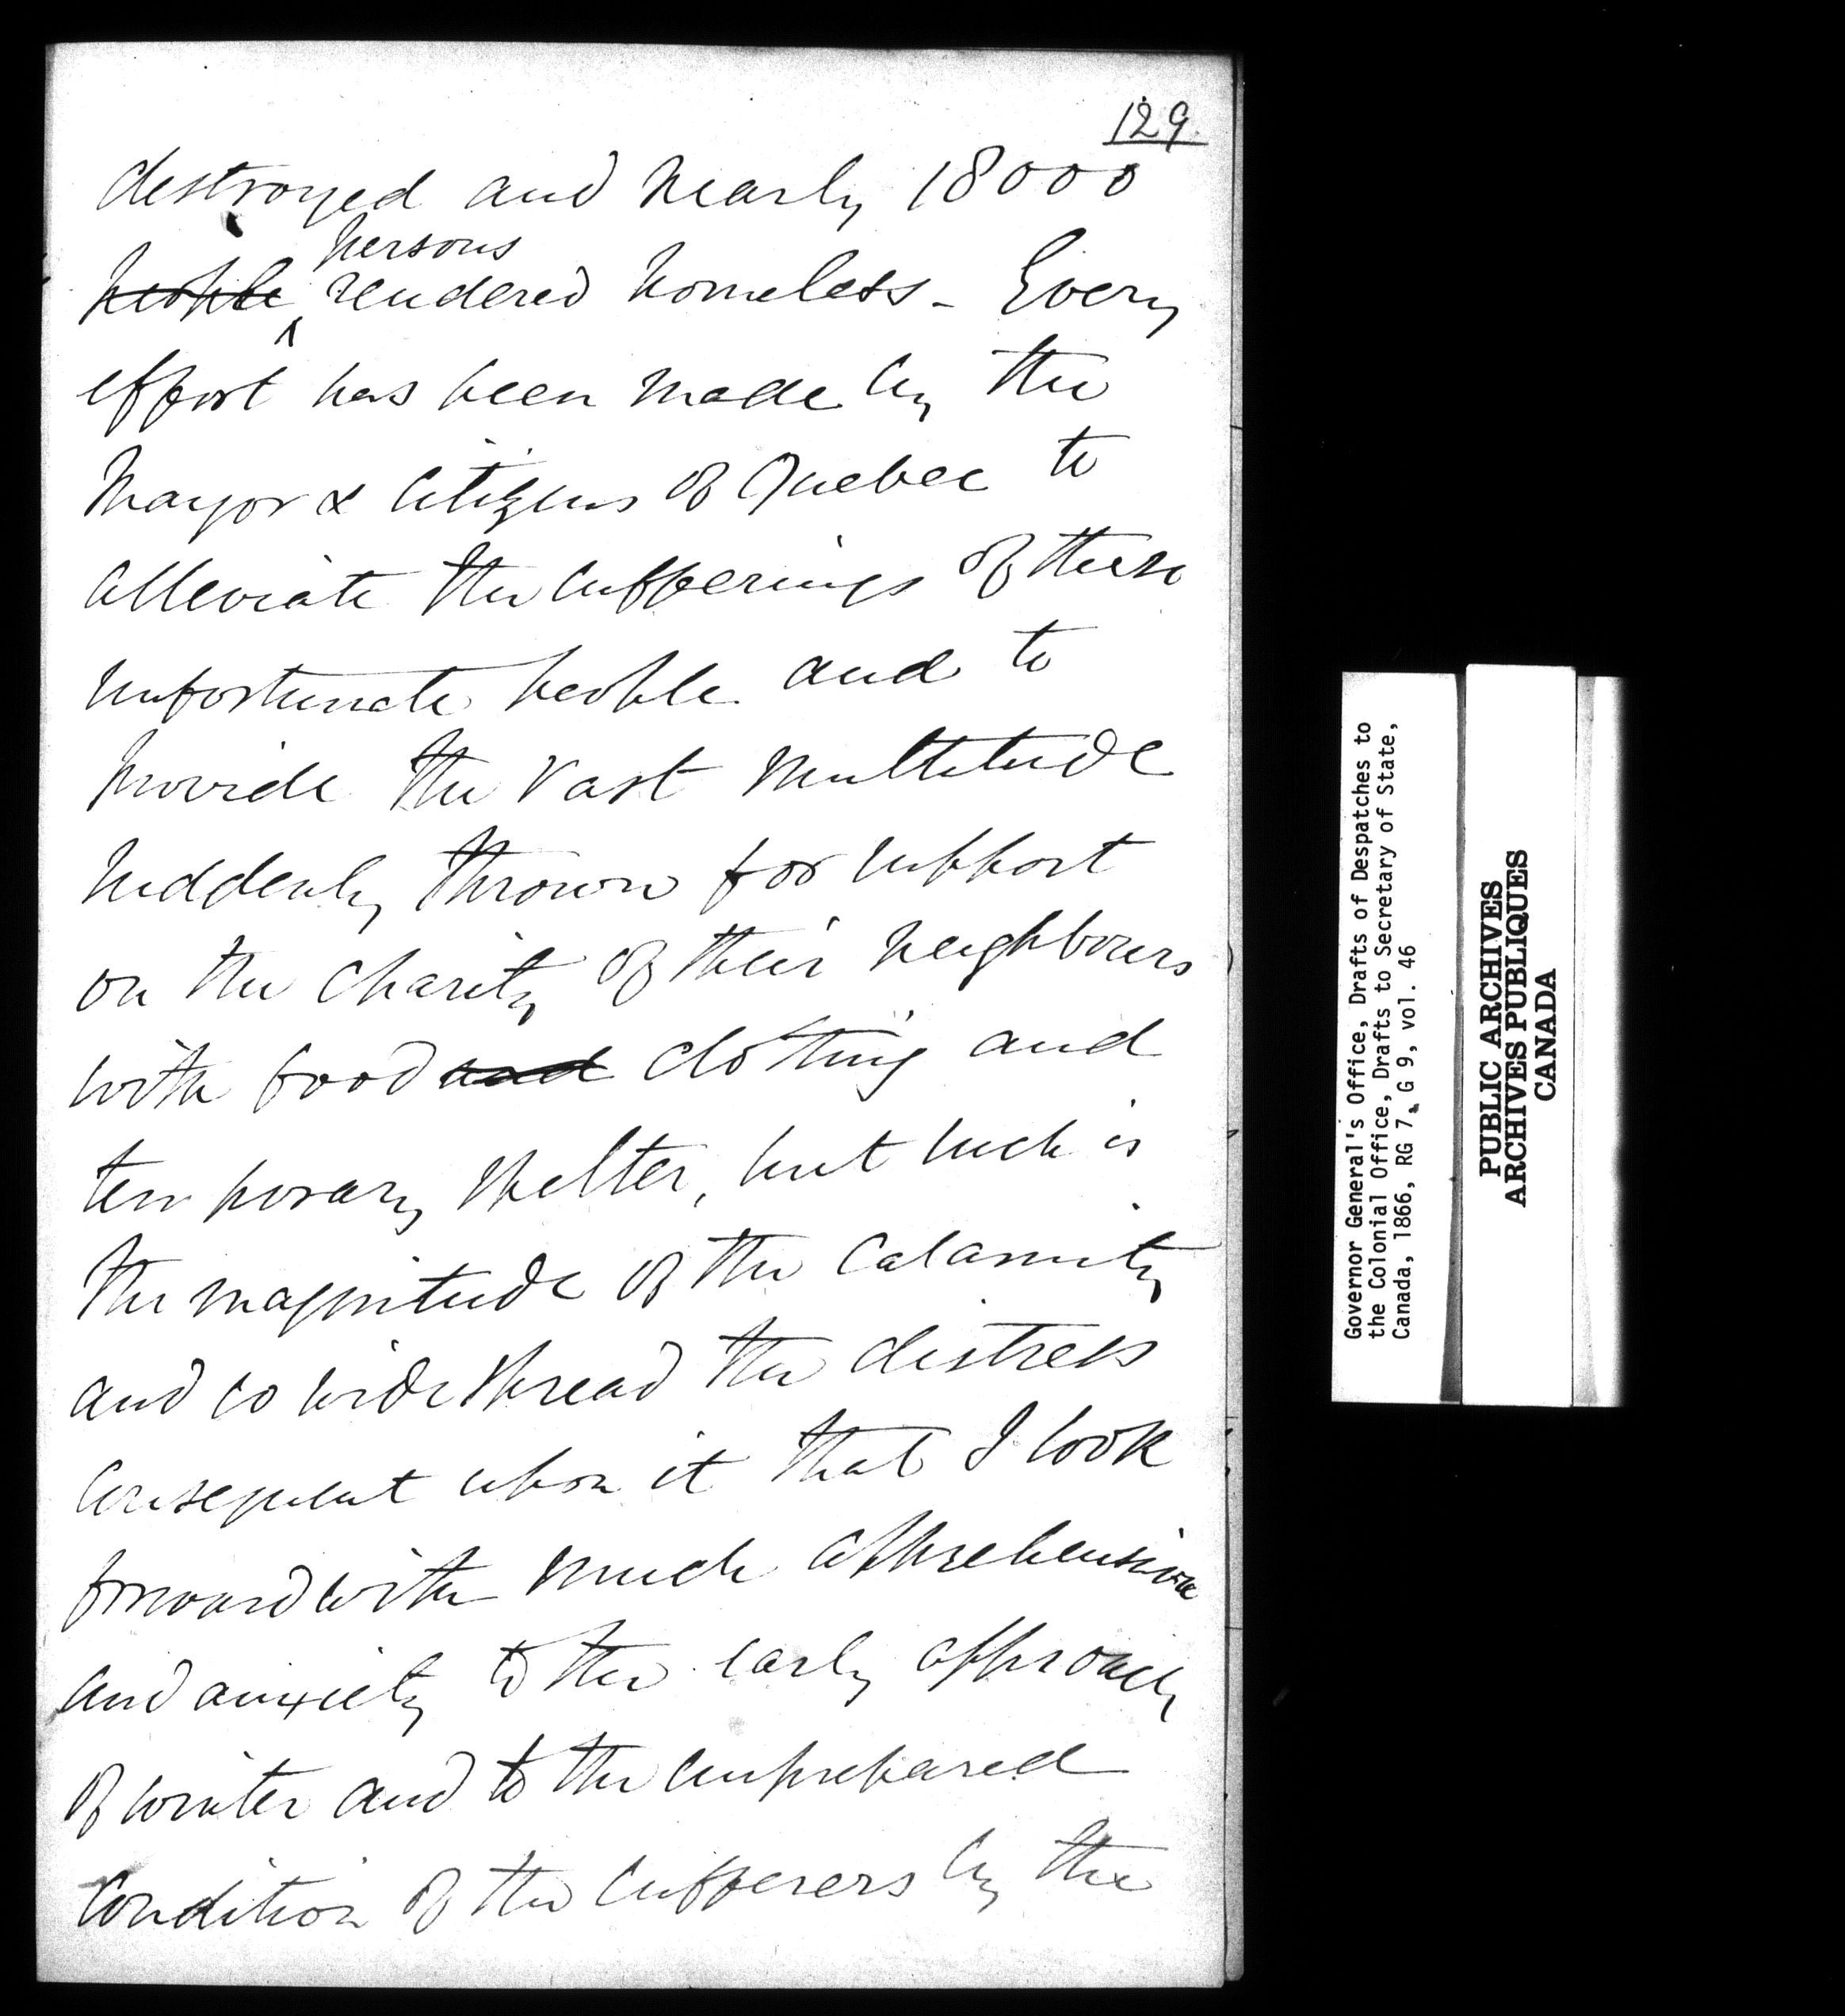 129.
destroyed and nearly 18000
people persons rendered homeless - Every
effort has been made by the
Mayor & Citizens of Quebec to
alleviate the sufferings of these
unfortunate people and to
provide the vast multitude
suddenly thrown for support
on the charity of their neighbours
with food and clothing and
temporary shelter, but such is
the magnitude of the calamity
and so wide spread the distress
consequent upon it that I look
forward with much apprehension
and anxiety to the early approach
of winter and to the unprepared
condition of the sufferers by the
Governor General's Office, Drafts of Despatches to
the Colonial Office, Drafts to Secretary of State,
Canada, 1866, RG 7, G 9, vol. 46
PUBLIC ARCHIVES
ARCHIVES PUBLIQUES
CANADA